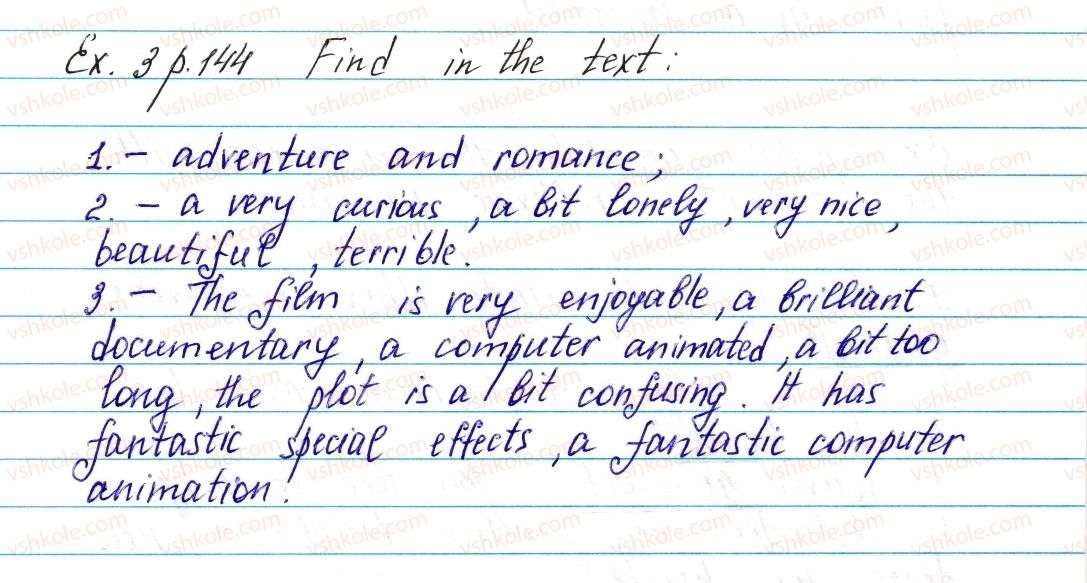 Ex. 3 p.144 Find in the text:
1. – adventure and romance;
2. – a very curious, a bit lonely, very nice,
beautiful, terrible.
3. – The film is very enjoyable, a brilliant
documentary, a computer animated, a bit too
long, the plot is a bit confusing. It has
fantastic special effects, a fantastic computer
animation.